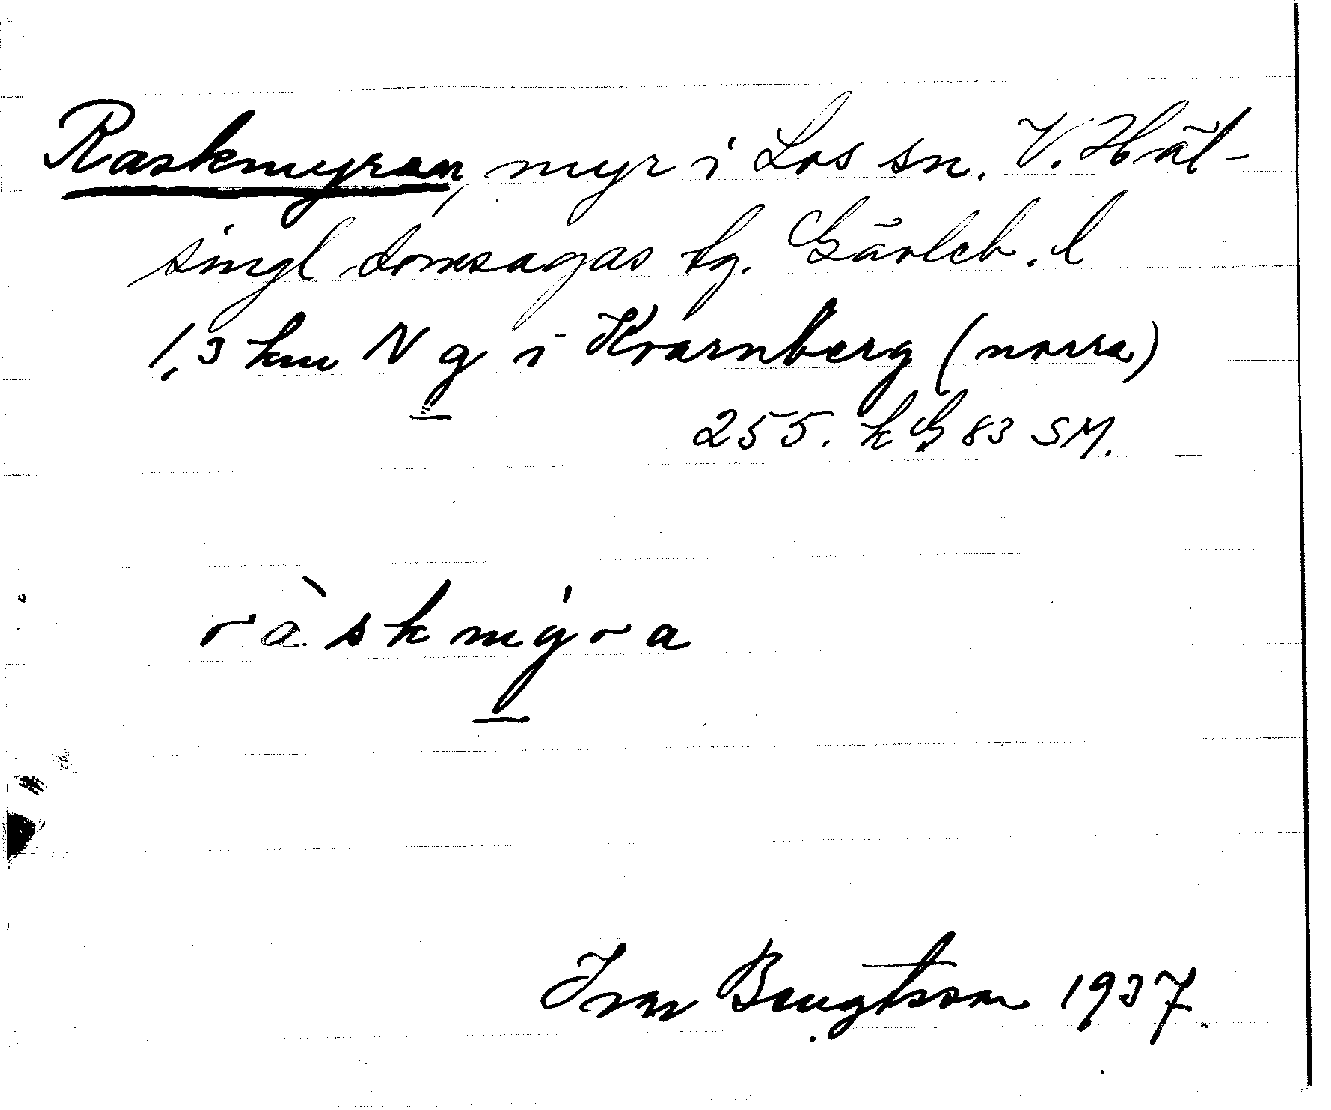 Raskmyran, myr i Los sn. V. Häl-
singl domsagas tg. Gävleb. l
1,3 km N g i Kvarnberg (norra)
255. k G 83 SM.
ràskmýra
Ivar Bengtsson 1937.